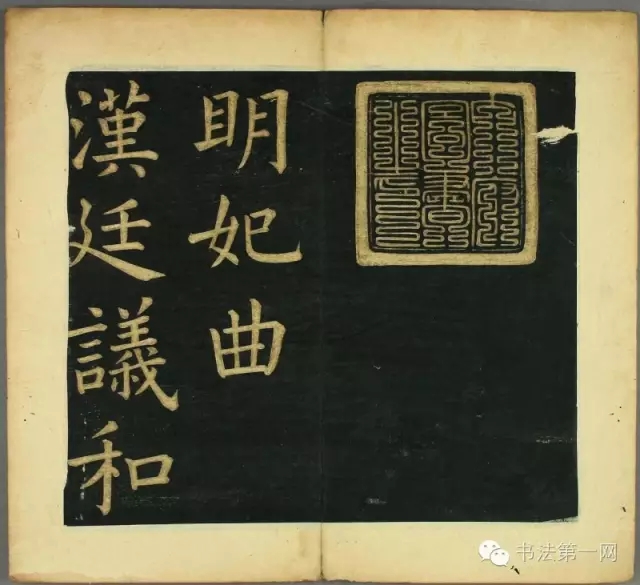 明妃曲
漢廷議和
书法第一网